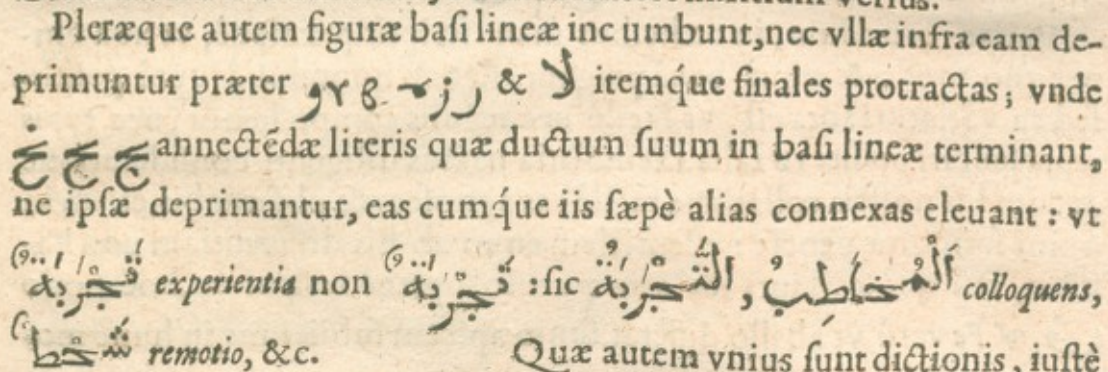 Pleræque autem figuræ basi lineæ inc umbunt, nec vllæ infra eam de-
primuntur præter ر ز & لا itemq́ue finales protractas; vnde
ج ح خ annectẽdæ literis quæ ductum suum in basi lineæ terminant,
ne ipsæ deprimantur, eas cumq́ue iis sæpè alias connexas eleuant: vt
تَجْرِبَةٌ experientia non تَجْرِبَةٌ : sic التَّجْرِبَةُ, اَلْمُخَاطِبُ colloquens,
شَحْطٌ remotio, &c. Quæ autem vnius sunt dictionis, iustè